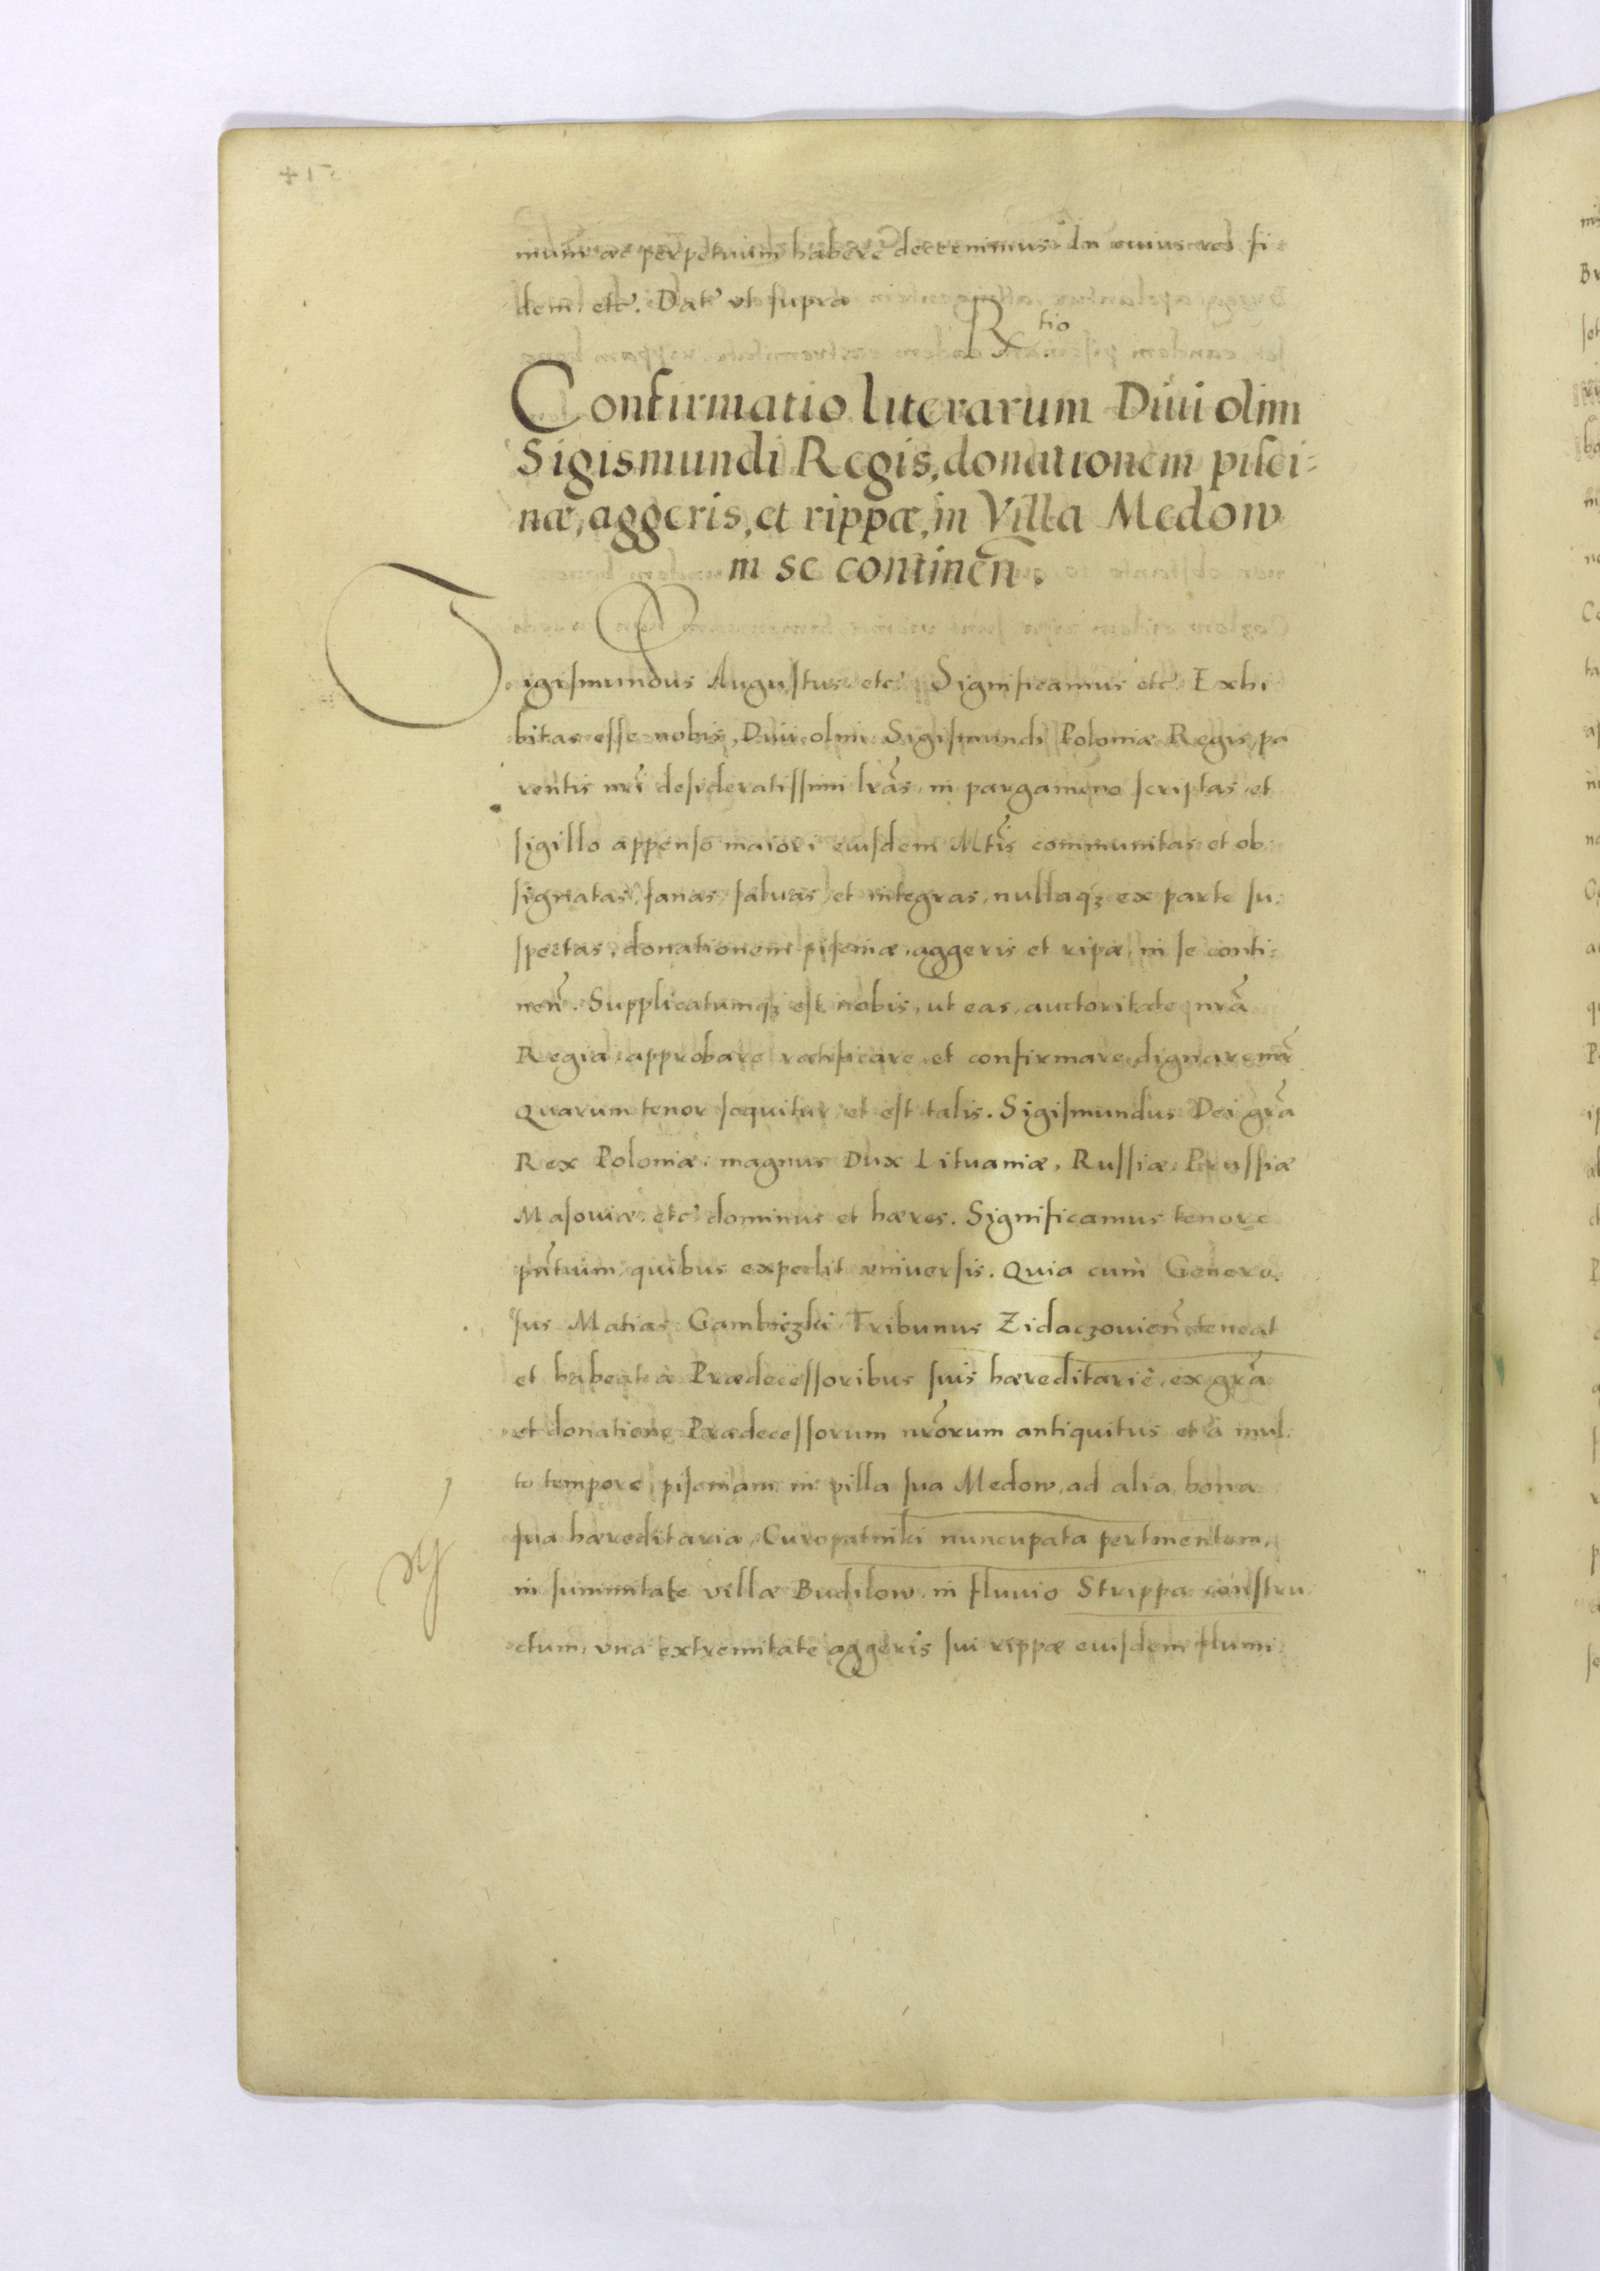 mum ac perpetuum habere decernimus. In cuius rei fi=
dem etc. Dat ut supra
Rtio
Confirmatio literarum Divi olim
Sigismundi Regis, donationem pisci=
næ, aggeris, et rippæ, in Villa Medow
in se continen̄.
Sigismundus Augustus etc Significamus etc Exhi
bitas esse nobis, Divi olim Sigismundi Poloniæ Regis, pa
rentis nr̄i desideratissimi lr̄as, in pargameno scriptas, et
sigillo appenso maiori eiusdem Mtis communitas et ob
signatas, sanas salvas et integras, nullaqꝫ ex parte su=
spectas, donationem piscinæ, aggeris et ripæ, in se conti=
nen̄. Supplicatumqꝫ est nobis, ut eas, auctoritate nr̄a
Regia, approbare ratificare, et confirmare dignaremr̄
Quarum tenor sequitur, et est talis. Sigismundus Dei gr̄a
Rex Poloniæ, magnus Dux Lituaniæ, Russiæ, Prussiæ
Masoviæ, etc dominus et hæres. Significamus tenore
pn̄tium, quibus expedit universis. Quia cum Genero=
sus Matias Gambiczki Tribunus Zidaczovien̄ teneat
et habeat à Prædecessoribus suis hæreditariè, ex gr̄a
et donatione Prædecessorum nr̄orum antiquitus et à mul=
to tempore, piscinam in villa sua Medow, ad alia bona
sua hæreditaria, Curopatniki nuncupata pertinentem,
in summitate villæ Budilow, in fluvio Strippa constru
ctum, una extremitate aggeris sui rippæ eiusdem flumi=